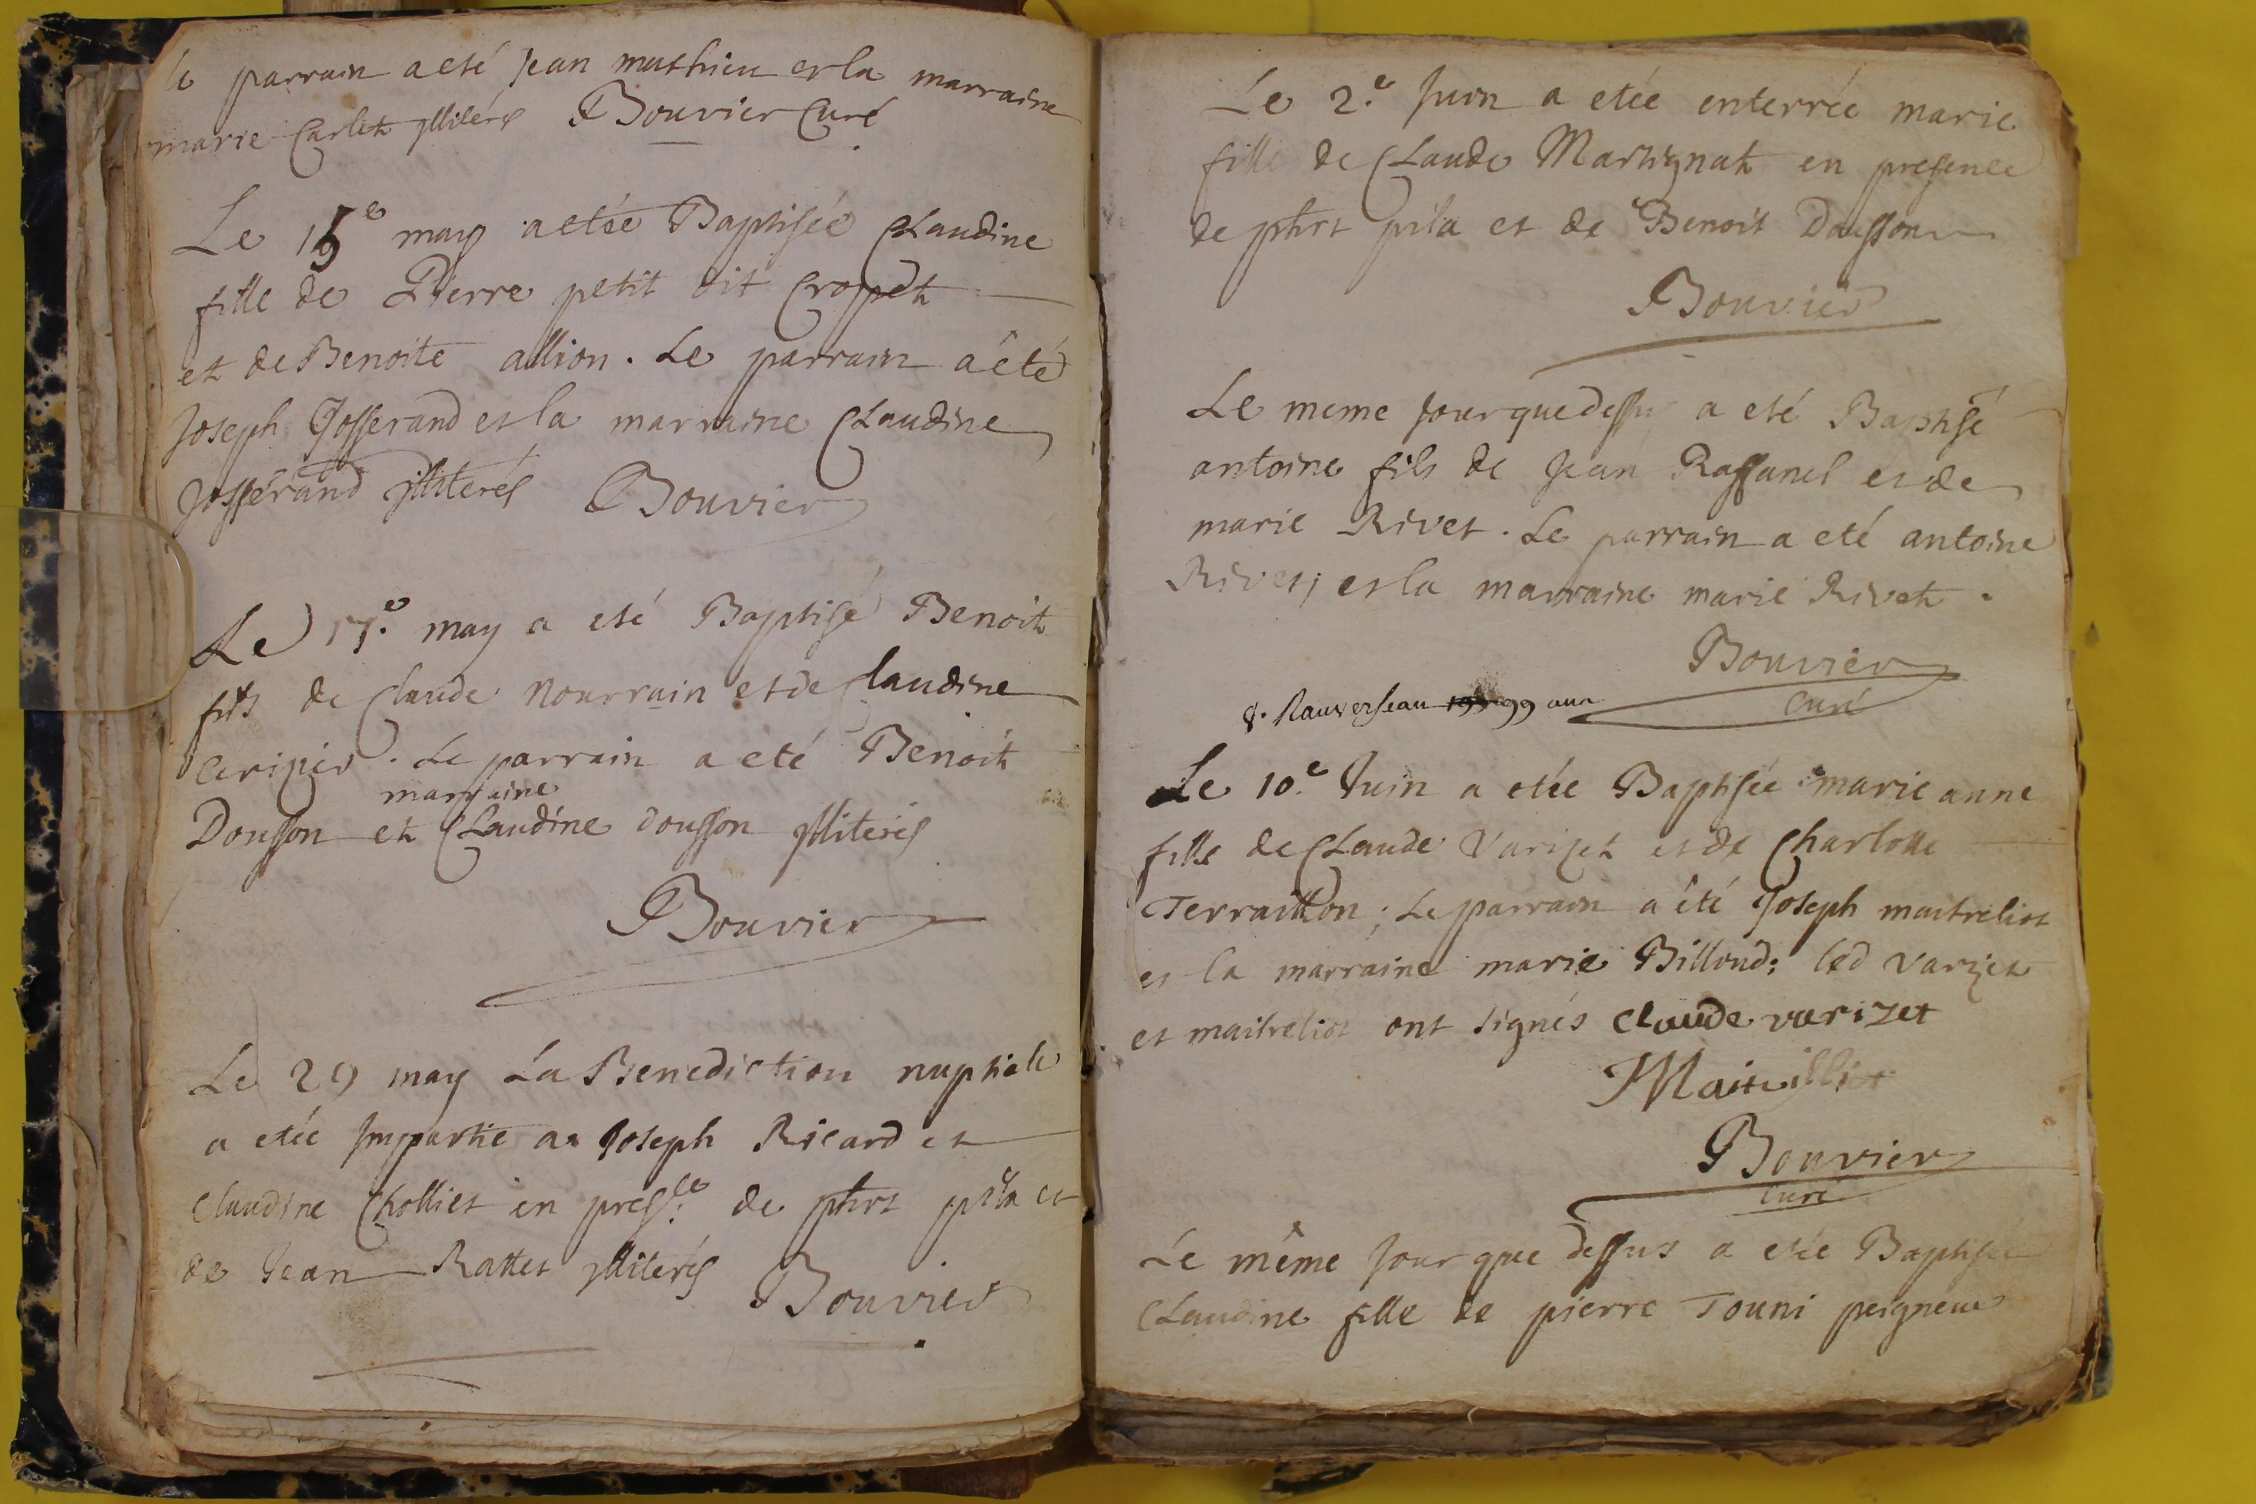 le parrain a eté Jean mathieu et la marraine
marie Carlet jlliterés Bouvier Curé
Le 15e may a etée Baptisée CLaudine
fille de Pierre petit dit Croppet
et de Benoite allion. Le parrain a êté
Joseph Josserand et la marraine CLaudine
Josserand jlliterés Bouvier
Le 17.e may a eté Baptisé Benoit
fils de Claude Nourrain et de Claudine
Cerizier. Le parrain a eté Benoit
marraine
Dousson et CLaudine dousson jlliterés
Bouvier
Le 29 may La Benediction nuptiale
a etée Jmpartie a Joseph Ricard et
Claudine Cholliet en presce de phrt pila et
de Jean Rattet jlliterés
Bouvier
Le 2.e Juin a etée enterrée marie
fille de CLaude Martignat en presence
de phrt pila et de Benoit Dousson
Bouvier
Le meme Jour que dessus a eté Baptisé
antoine fils de Jean Raffanel et de
marie Rivet. Le parrain a eté antoine
Rivet; et la marraine marie Rivet.
Bouvier
Curé
Le 10.e Juin a etée Baptisée marie anne
fille de CLaude Varizet et de Charlotte
Terraillon; Le parrain a êté Joseph maitreliot
et la marraine marie Billoud; led Varizet
et maitreliot ont signés claude varizet
Bouvier
Curé
Le même Jour que dessus a etée Baptisée
CLaudine fille de pierre Touni peigneur